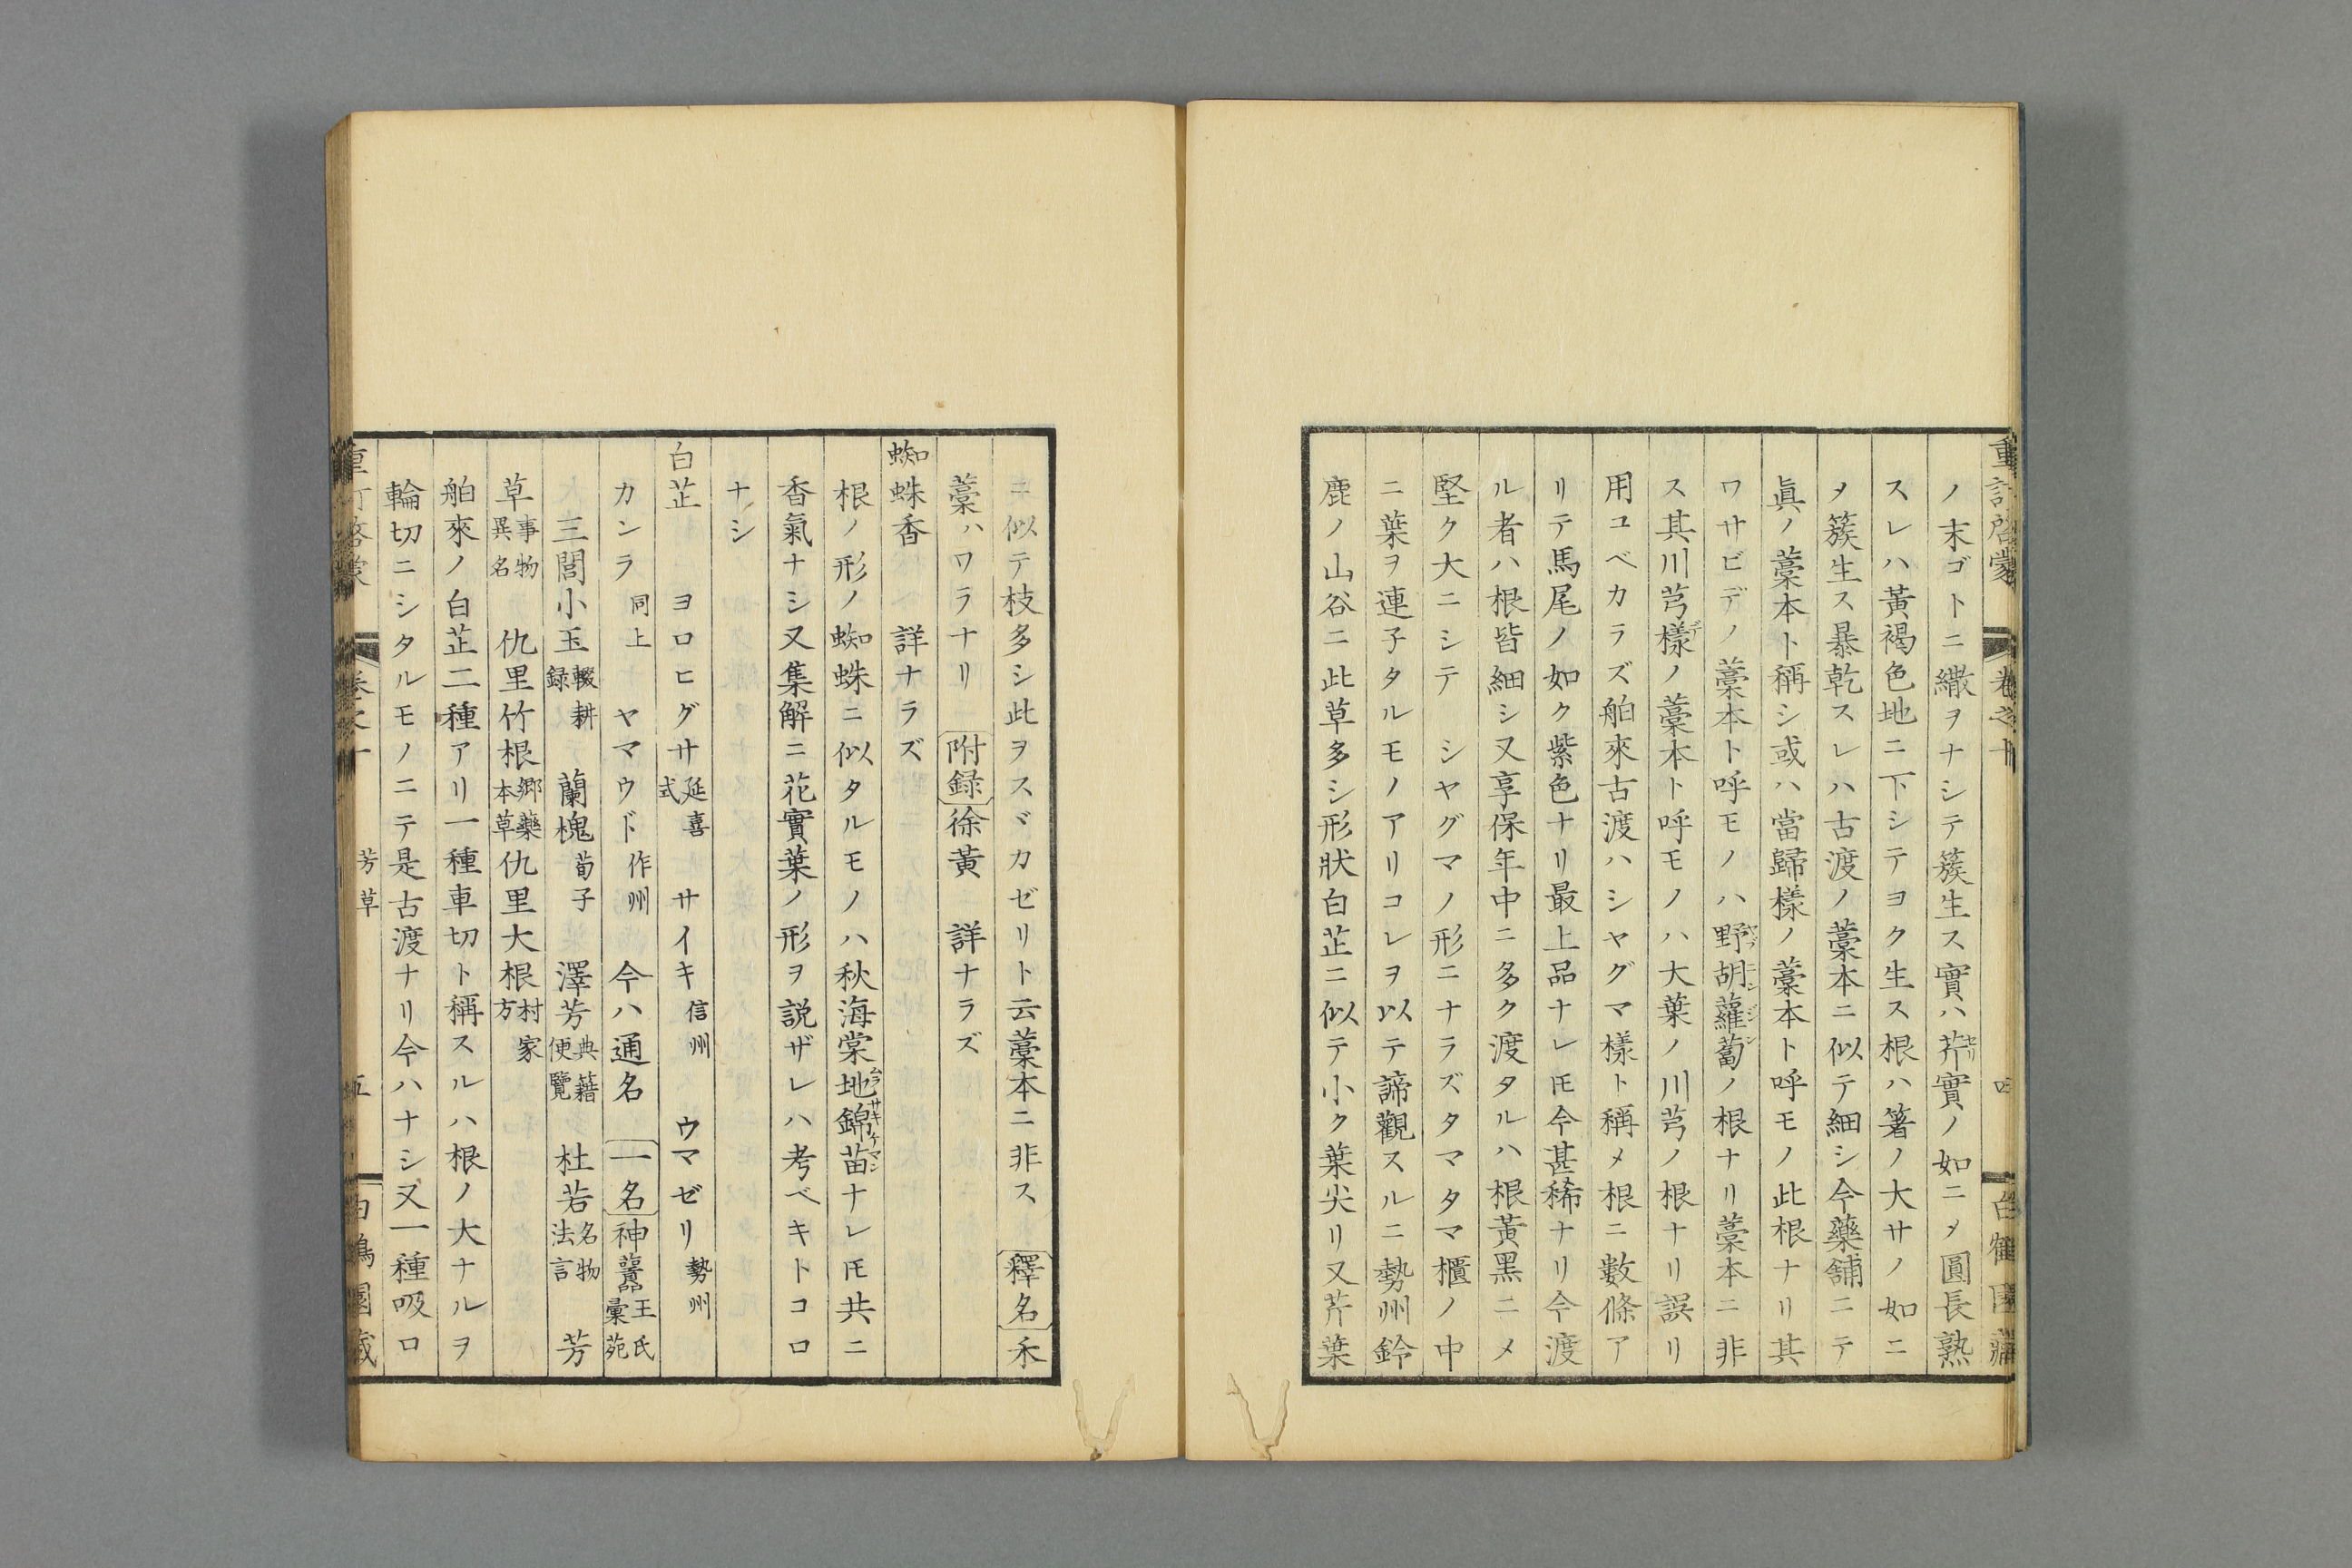 ノ末ゴトニ繖ヲナシテ簇生ス實ハ芹實ノ如ニメ圓長熟
スレハ黃褐色地ニ下シテヨク生ス根ハ箸ノ大サノ如ニ
メ簇生ス暴乾スレハ古渡ノ藁本ニ似テ細シ今藥舖ニテ
眞ノ藁本ト稱シ或ハ當歸樣ノ藁本ト呼モノ此根ナリ其
ワサビデノ藁本ト呼モノハ野胡蘿蔔ノ根ナリ藁本ニ非
ス其川芎樣ノ藁本ト呼モノハ大葉ノ川芎ノ根ナリ誤リ
用ユベカラズ舶來古渡ハシヤグマ樣ト稱メ根ニ數條ア
リテ馬尾ノ如ク紫色ナリ最上品ナレ𪜈今甚稀ナリ今渡
ル者ハ根皆細シ又享保年中ニ多ク渡タルハ根黃黑ニメ
堅ク大ニシテ シヤグマノ形ニナラズタマタマ櫃ノ中
ニ葉ヲ連子タルモノアリコレヲ以テ諦觀スルニ勢州鈴
鹿ノ山谷ニ此草多シ形狀白芷ニ似テ小ク葉尖リ又芹葉
ニ似テ枝多シ此ヲスヾカゼリト云藁本ニ非ス 釋名 禾
藁ハワラナリ 附録 徐黃 詳ナラズ
蜘蛛香 詳ナラズ
根ノ形ノ蜘蛛ニ似タルモノハ秋海棠地錦苗ナレ𪜈共ニ
香氣ナシ又集解ニ花實葉ノ形ヲ説ザレハ考ベキトコロ
ナシ
白芷 ヨロヒグサ 延喜式 サイキ 信州 ウマゼリ 勢州
カンラ 同上 ヤマウド 作州 今ハ通名 一名 神 王氏彙苑
三閭小玉 輟耕録 蘭槐 荀子 澤芳 典籍便覽 杜若 名物法言 芳
草 事物異名 仇里竹根 郷藥本草 仇里大根 村家方
舶來ノ白芷二種アリ一種車切ト稱スルハ根ノ大ナルヲ
輪切ニシタルモノニテ是古渡ナリ今ハナシ又一種吸口
芳草